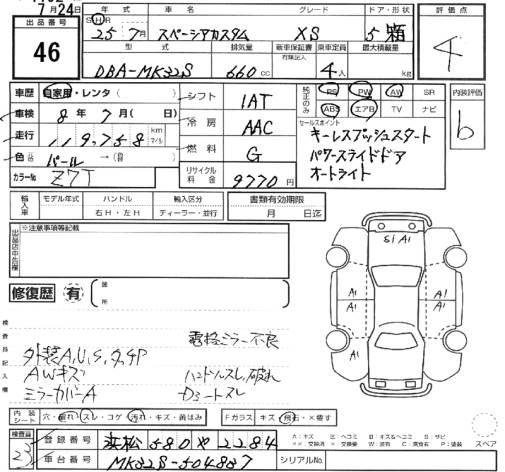 7月24日
出品番号
46
年式 車名 グレード ドア・形状
S・H・R 25年7月 スペーシアカスタム XS 5 箱
型式 排気量 新車保証書 乗車定員 最大積載量
有保記入
DBA-MK32S 660cc 4人 kg
評価点
4
車歴 自家用・レンタ( )
車検 8年7月(日)
走行 119,758 km マイル
色 パール →( )
カラーNo Z7T
シフト IAT
冷房 AAC
燃料 G
リサイクル料金 9770円
純正のみ PS PW AW SR
ABS エアB TV ナビ
セールスポイント
キーレスプッシュスタート
パワースライドドア
オートライト
内装評価
b
輸入車 モデル年式 ハンドル 輸入区分 書類有効期限
右H・左H ディーラー・並行 月 日迄
※注意事項等記載
修復歴 有 箇所
S1 A1
A1 A1
A1 A1
検査員記入欄
電格ミラー不良
外装A,U,S,タ,チP
AWキズ ハンドルスレ,破れ
ミラーカバーA Dシートスレ
内装シート 穴・破れ・スレ・コゲ・汚れ・キズ・黄ばみ
Fガラス キズ・飛石・×要す
A:キズ U:ヘコミ B:キズ&ヘコミ S:サビ
スペア
検査員 23
登録番号 浜松 580 や 2284
車台番号 MK32S-504887
シリアルNo.